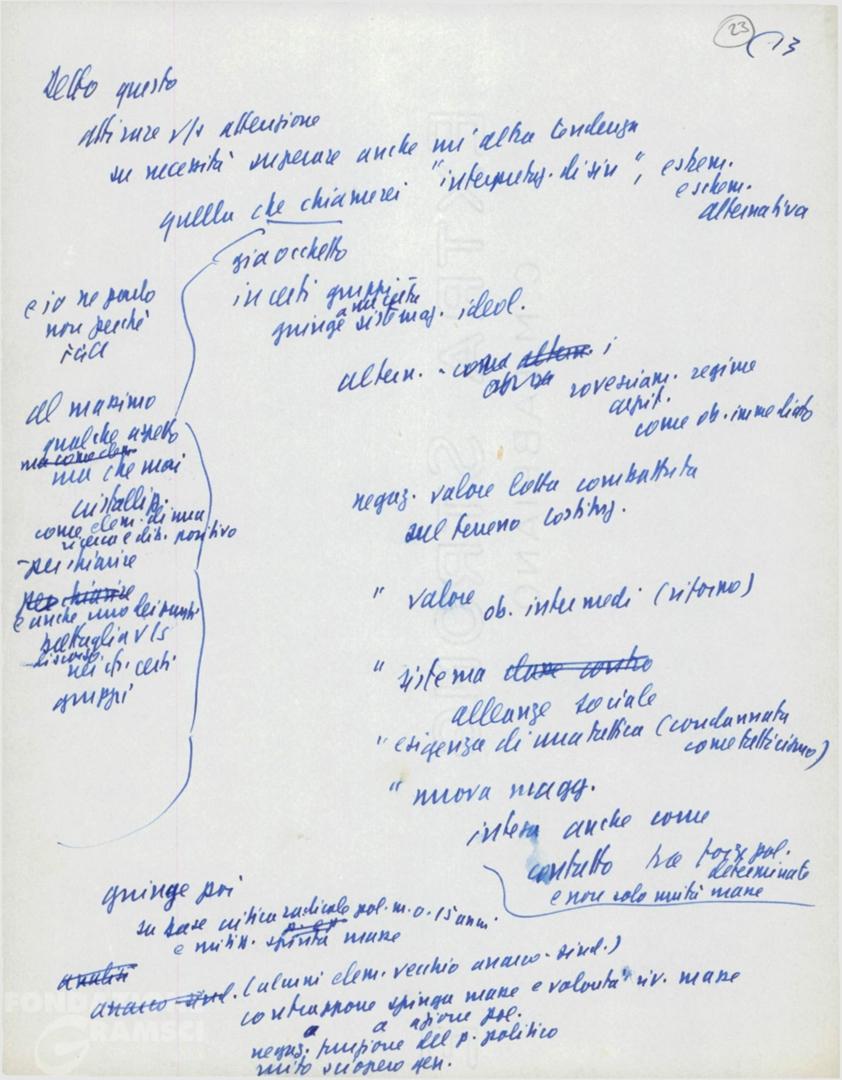 23 (13
Detto questo
attirare v/s attenzione
su necessità superare anche un'altra tendenza
quella che chiamerei "interpretaz. di sin", estrem.
e schem.
alternativa
già occhetto
in certi gruppi
a una certa
giunge sistemaz. ideol.
altern. - come altern. i
rovesciam. regime
capit.
come ob. immediato
negaz. valore lotta combattuta
sul terreno costituz.
" valore ob. intermedi (riforno)
" sistema
alleanze sociale
" esigenza di una tattica (condannata
come tatticismo)
" nuova magg.
intesa anche come
contatto tra forze pol.
determinate
e non solo unità masse
e io ne parlo
non perché
al massimo
qualche aspetto
ma come elem.
ma che mai
cristalliz.
come elem. di una
ricerca e dib. positivo
- per chiarire
per chiarire
e anche uno dei punti
battaglia v/s
discorso
certi
gruppi
giunge poi
su base critica radicale pol. m. o. 15 anni
p. es.
e mitiz. spinta masse
analisi
anarco-sind. (alcuni elem. vecchio anarco-sind.)
contrappone spinga masse e volontà riv. masse
a a azione pol.
negaz. funzione del p. politico
mito sciopero gen.
FONDAZIONE
GRAMSCI